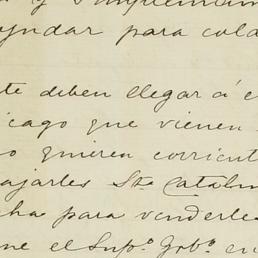 y simplemen
ayudar para cola
te deben llegar á e
icago que vienen
o quieren corrient
ajarles Sta Catalin
ha para venderle
ne el Supo. Grbo. en